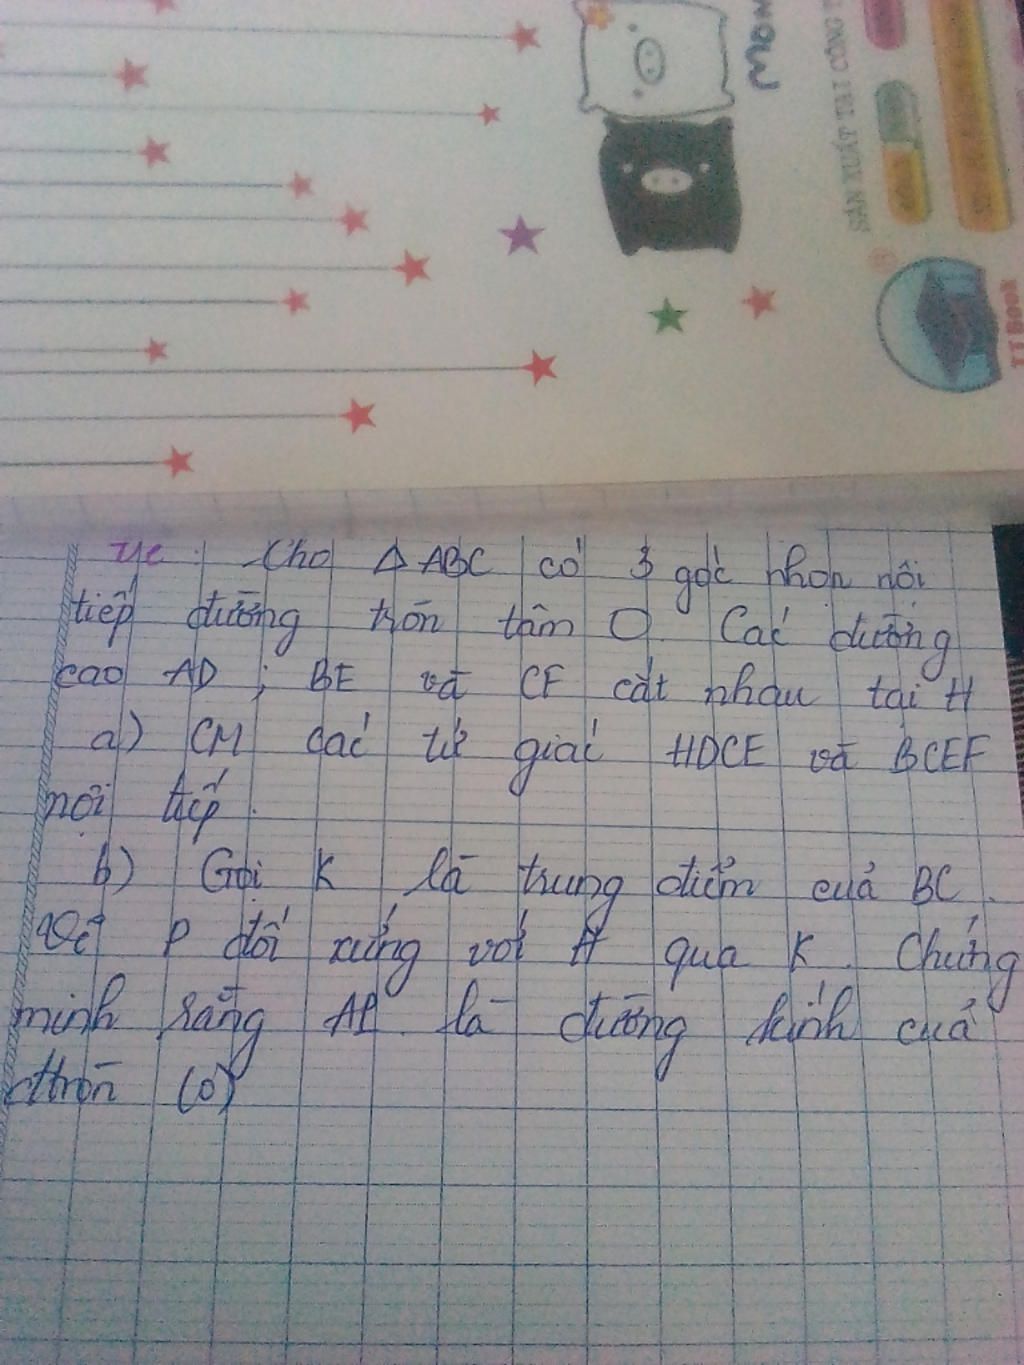 Mom
SẢN XUẤT TẠI CÔNG T
TT Book
Cho Δ ABC có 3 góc nhọn nội
tiếp đường tròn tâm O. Các đường
cao AD ; BE và CF cắt nhau tại H
a) CM các tứ giác HDCE và BCEF
nội tiếp.
b) Gọi K là trung điểm của BC.
Vẽ P đối xứng với H qua K. Chứng
minh rằng AP là đường kính của
đtròn (O)